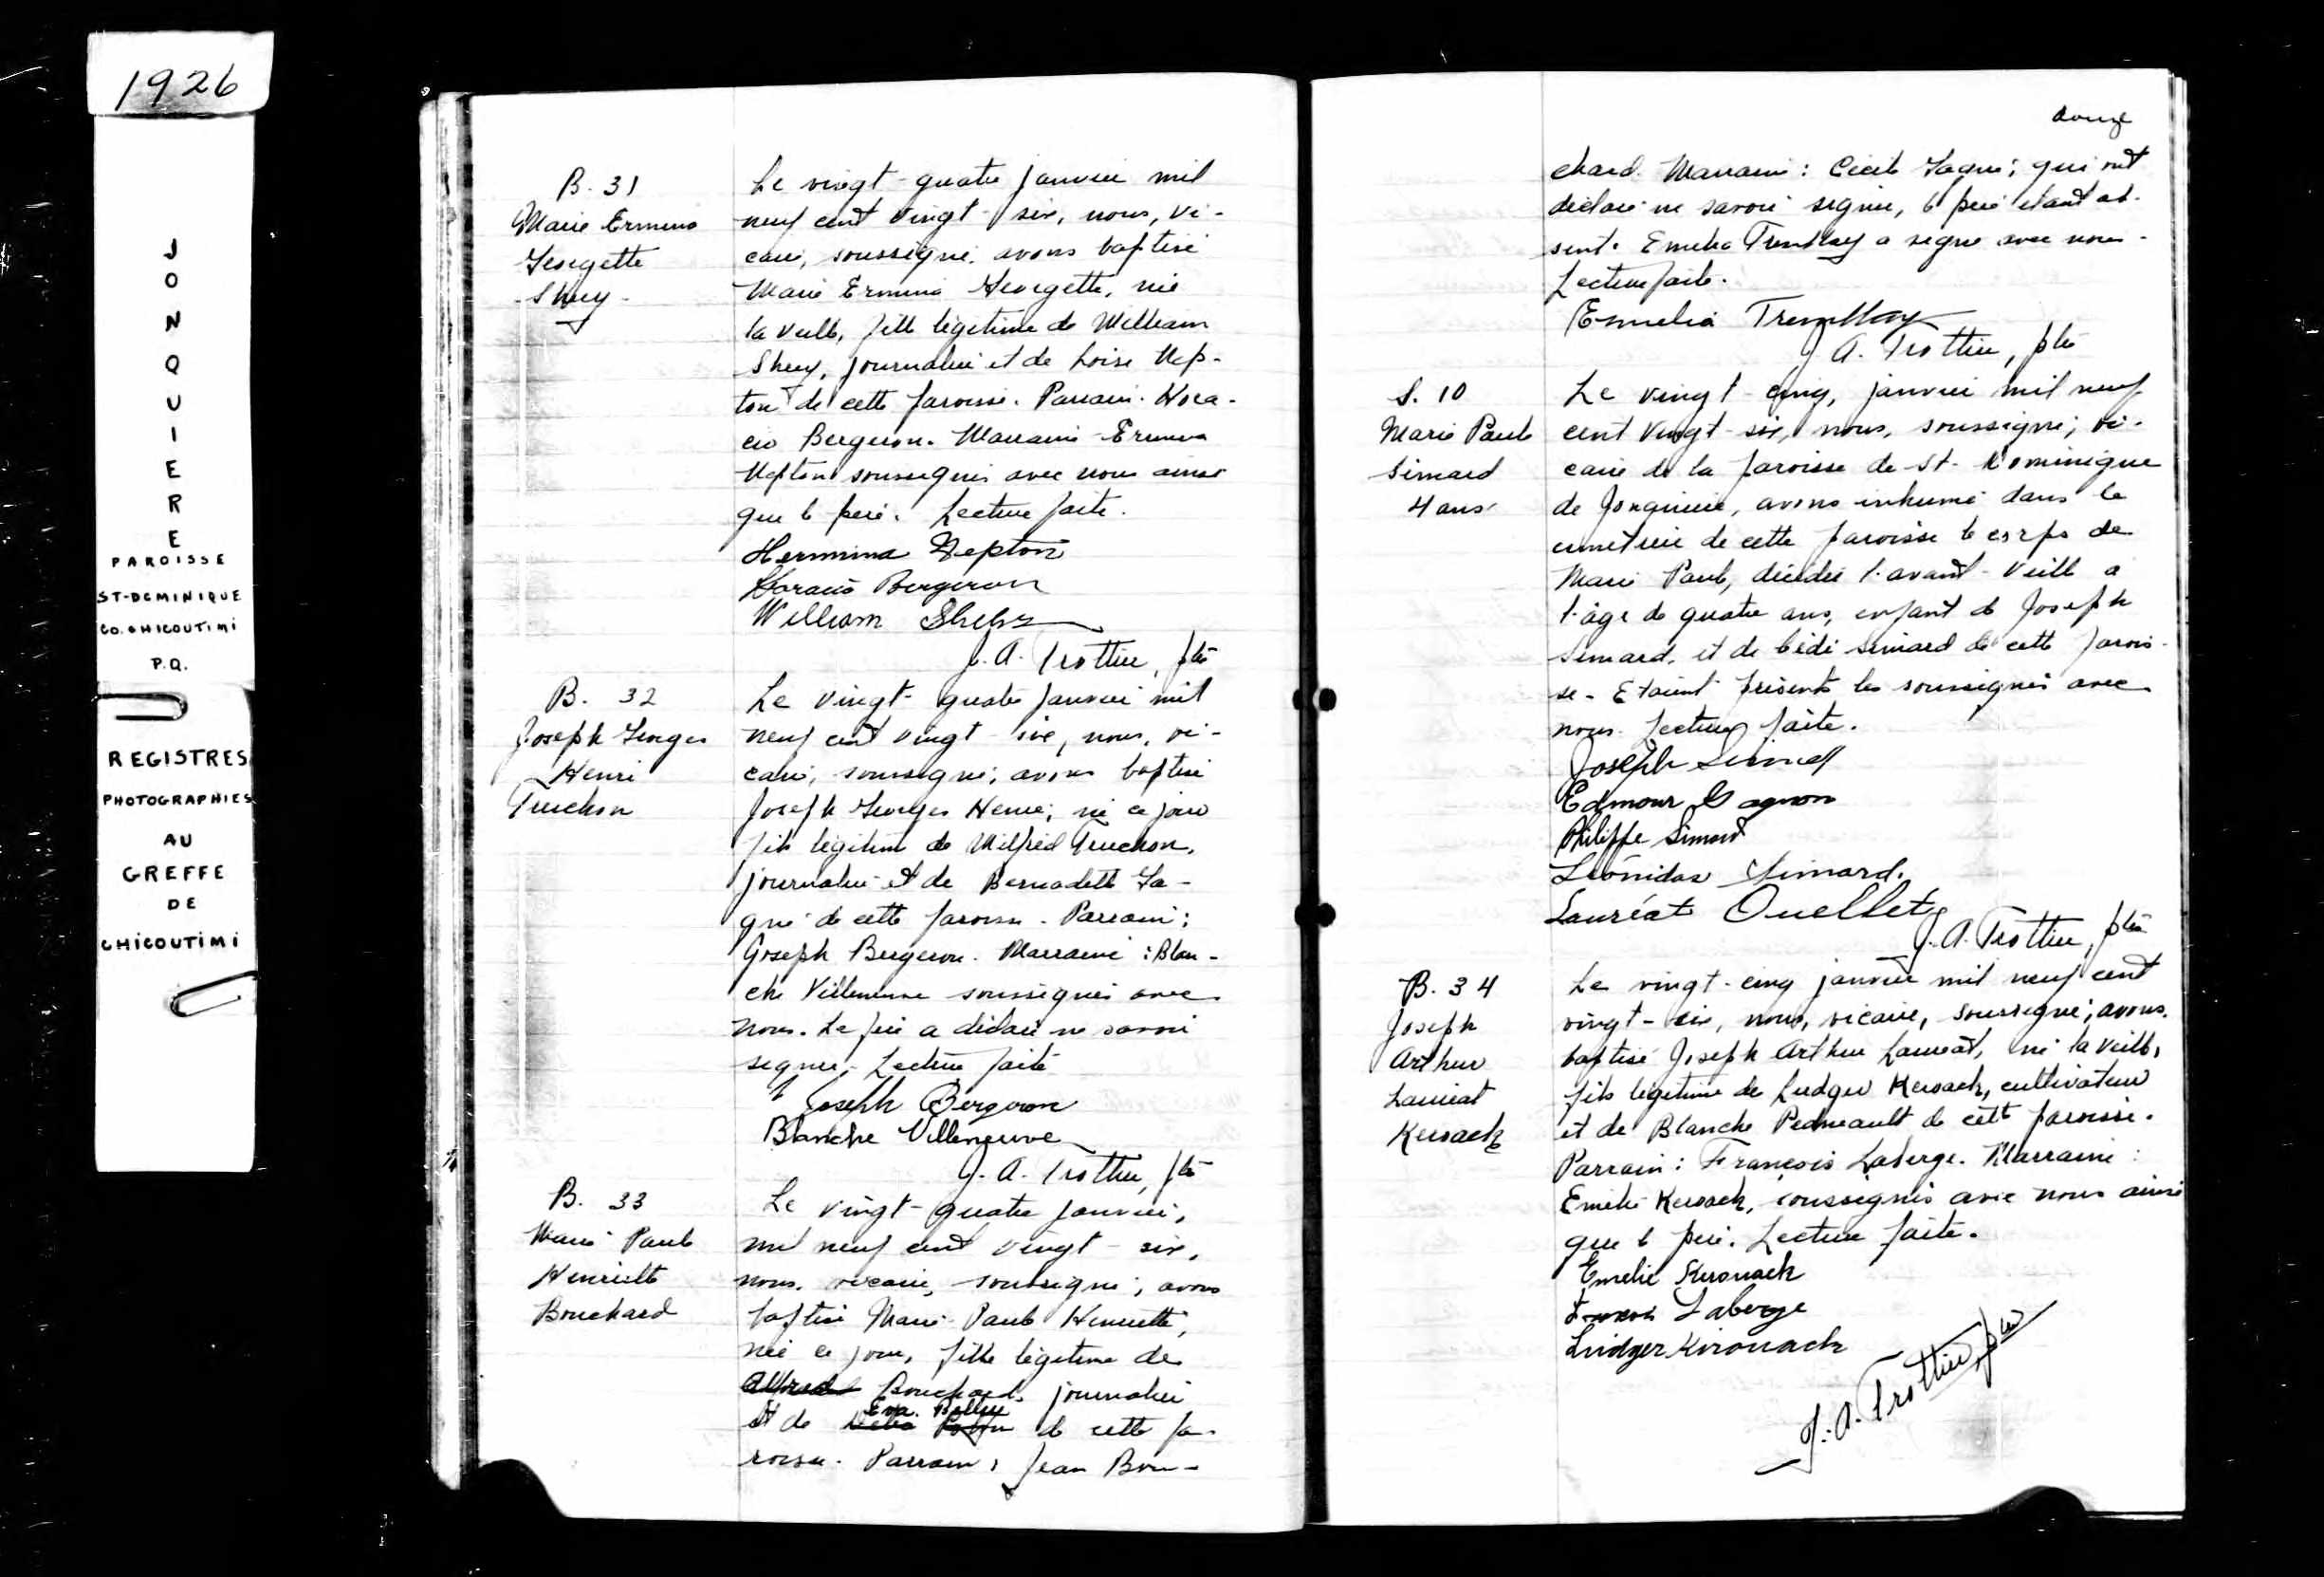 1926
JONQUIERE
PAROISSE
ST-DOMINIQUE
CO. CHICOUTIMI
P.Q.
REGISTRES
PHOTOGRAPHIES
AU
GREFFE
DE
CHICOUTIMI
B. 31
Marie Ermina
Georgette
Shey
Le vingt-quatre janvier mil
neuf cent vingt-six, nous, vi-
caire, soussigné, avons baptisé
Marie Ermina Georgette, née
la veille, fille légitime de William
Shey, journalier et de Loise Nep-
ton de cette paroisse. Parrain: Hora-
cio Bergeron. Marraine: Ermina
Nepton soussignés avec nous ainsi
que le père. Lecture faite.
Hermina Nepton
Horacio Bergeron
William
J. A. Trottier, ptre
B. 32
Joseph Georges
Henri
Truchon
Le vingt-quatre janvier mil
neuf cent vingt-six, nous, vi-
caire, soussigné, avons baptisé
Joseph Georges Henri, né ce jour
fils légitime de Wilfrid Truchon,
journalier et de Bernadette Ga-
gné de cette paroisse. Parrain:
Joseph Bergeron. Marraine: Blan-
che Villeneuve soussignés avec
nous. Le père a déclaré ne savoir
signer. Lecture faite
Joseph Bergeron
Blanche Villeneuve
J. A. Trottier, ptre
B. 33
Marie Paule
Henriette
Bouchard
Le vingt-quatre janvier,
mil neuf cent vingt-six,
nous, vicaire, soussigné, avons
baptisé Marie Paule Henriette,
née ce jour, fille légitime de
Alfred Bouchard, journalier
Eva
et de de cette pa-
roisse. Parrain: Jean Bou-
douze
chard. Marraine: Cécile Gagné; qui ont
déclaré ne savoir signer, le père étant ab-
sent. Emelia Tremblay a signé avec nous.
Lecture faite.
Emelia Tremblay
J. A. Trottier, ptre
S. 10
Marie Paule
Simard
4 ans
Le vingt-cinq, janvier mil neuf
cent vingt-six, nous, soussigné, vi-
caire de la paroisse de St-Dominique
de Jonquière, avons inhumé dans le
cimetière de cette paroisse le corps de
Marie Paule, décédée l'avant-veille à
l'âge de quatre ans, enfant de Joseph
Simard, et de Simard de cette parois-
se. Etaient présents les soussignés avec
nous. Lecture faite.
Joseph Simard
Edmour Gagnon
Philippe Simard
Léonidas Simard.
Lauréat Ouellet
J. A. Trottier, ptre
B. 34
Joseph
Arthur
Lauréat
Keroack
Le vingt-cinq janvier mil neuf cent
vingt-six, nous, vicaire, soussigné, avons
baptisé Joseph Arthur Lauréat, né la veille,
fils légitime de Ludger Keroack, cultivateur
et de Blanche Pedneault de cette paroisse.
Parrain: François Laberge. Marraine:
Emelie Keroack, soussignés avec nous ainsi
que le père. Lecture faite.
Emelie Kerouack
Laberge
Ludger Kirouack
J. A. Trottier, ptre